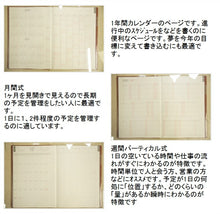 1年間カレンダーのページです。進
行中のスケジュールをなどを書くのに
便利なページです。夢を今年の目
標に変えて書き込むにも最適で
す。
月間式
1ヶ月を見開きで見えるので長期
の予定を管理をしたい人に最適で
す。
1日に1、2件程度の予定を管理す
るのに適しています。
週間バーティカル式
1日の空いている時間や仕事の流
れがすぐにわかるのが特徴です。
時間単位で人と会う方、営業の方な
どにオススメです。予定が1日の何
処に「位置」するか、どのくらいの
「量」があるか瞬時にわかるのが特
徴です